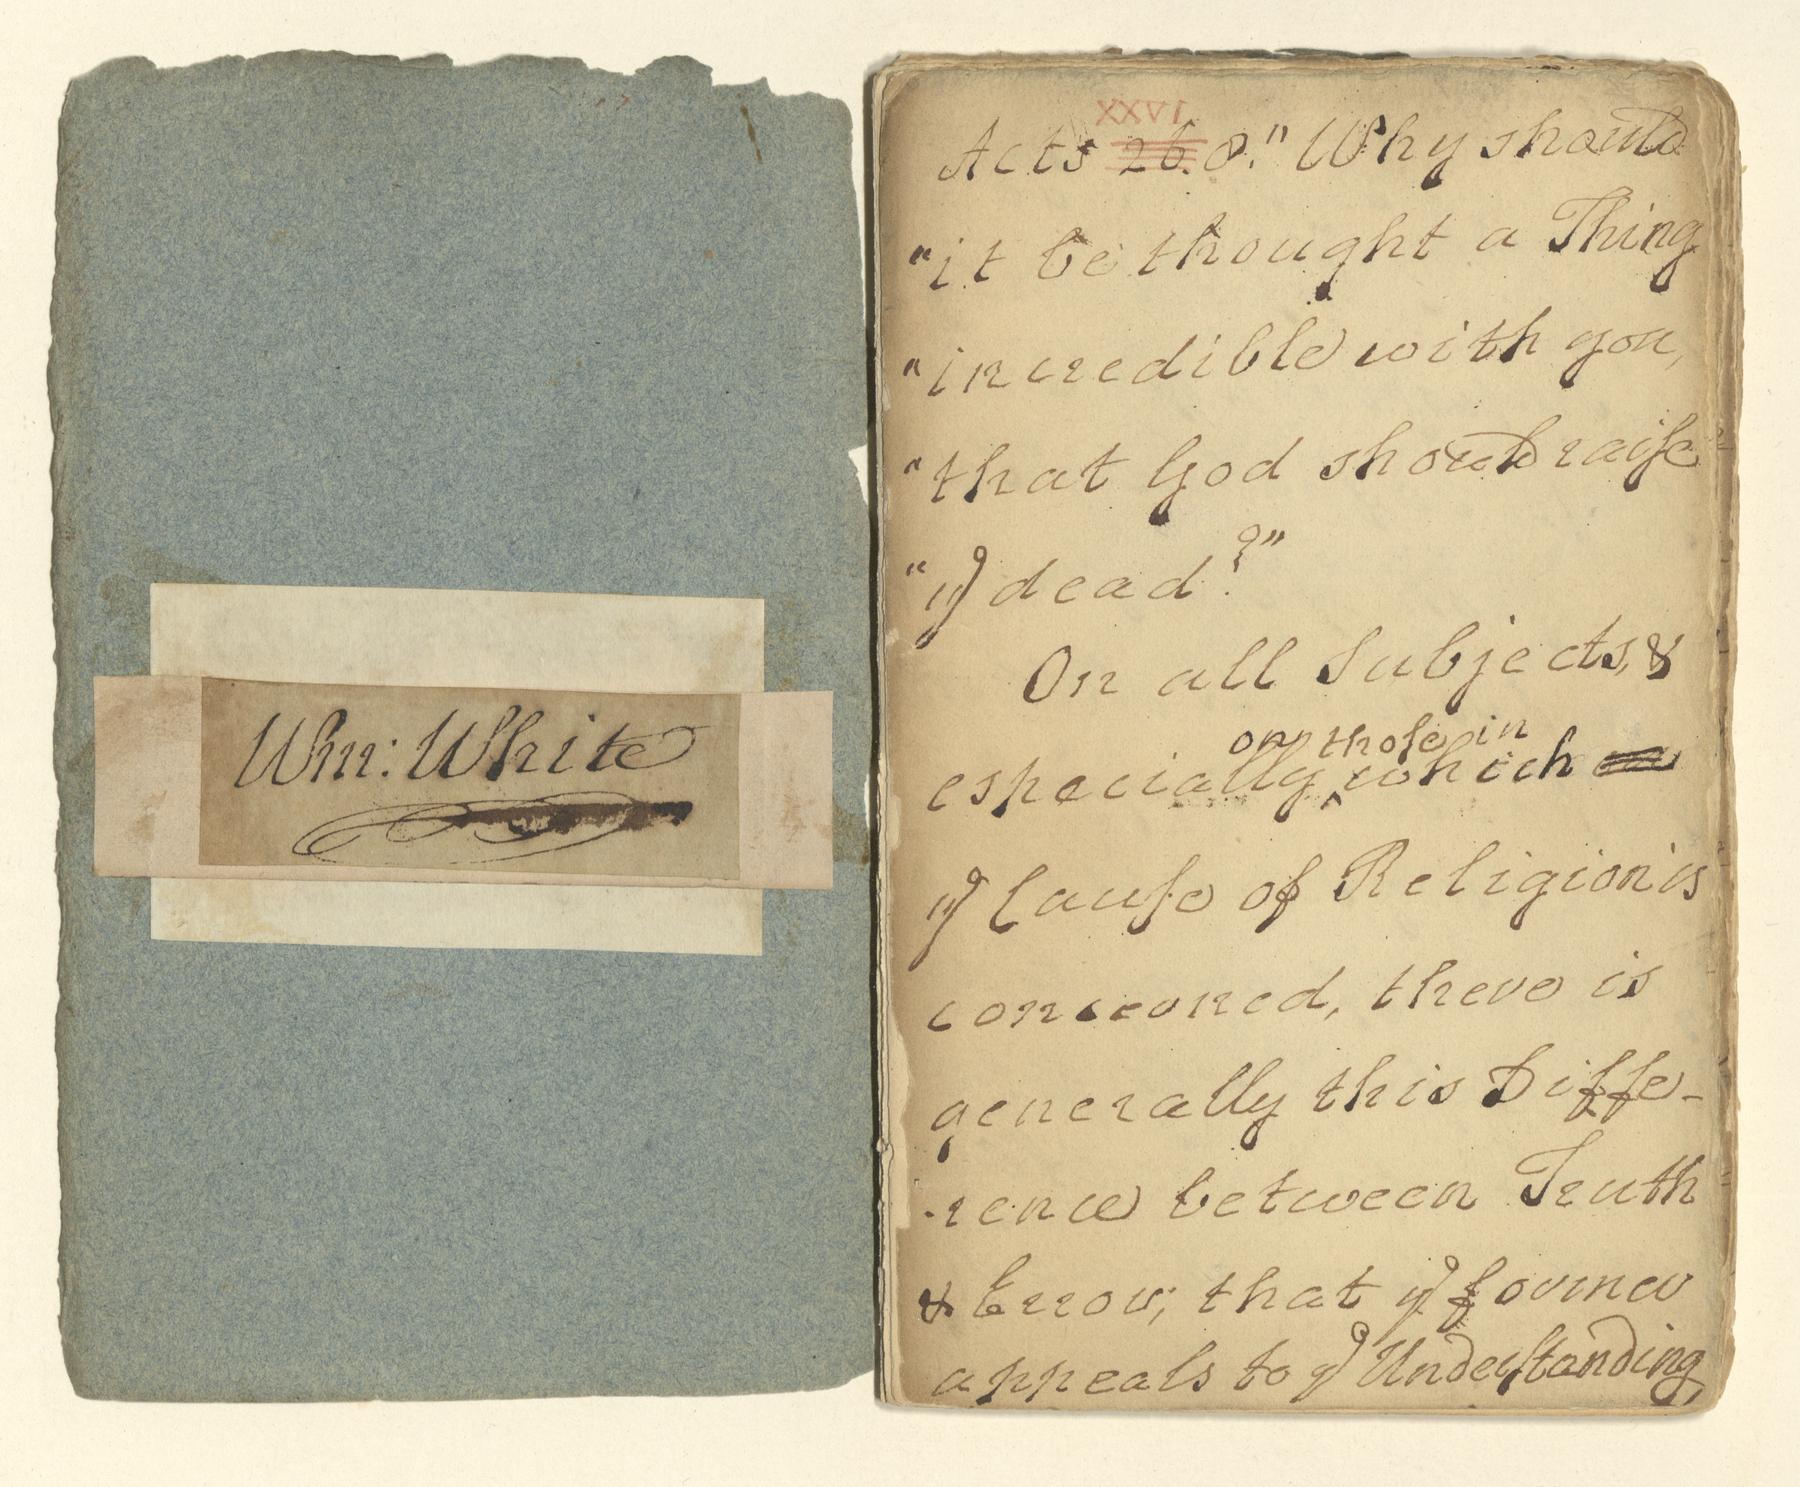 Wm: White
XXVI.
Acts 26. 8." Why should
"it be thought a Thing
"incredible with you,
"that God should raise
"ye dead?"
On all Subjects, &
on those in
especially ^ which
ye Cause of Religion is
concerned, there is
generally this Diffe-
-rence between Truth
& Error; that ye former
appeals to ye Understanding,